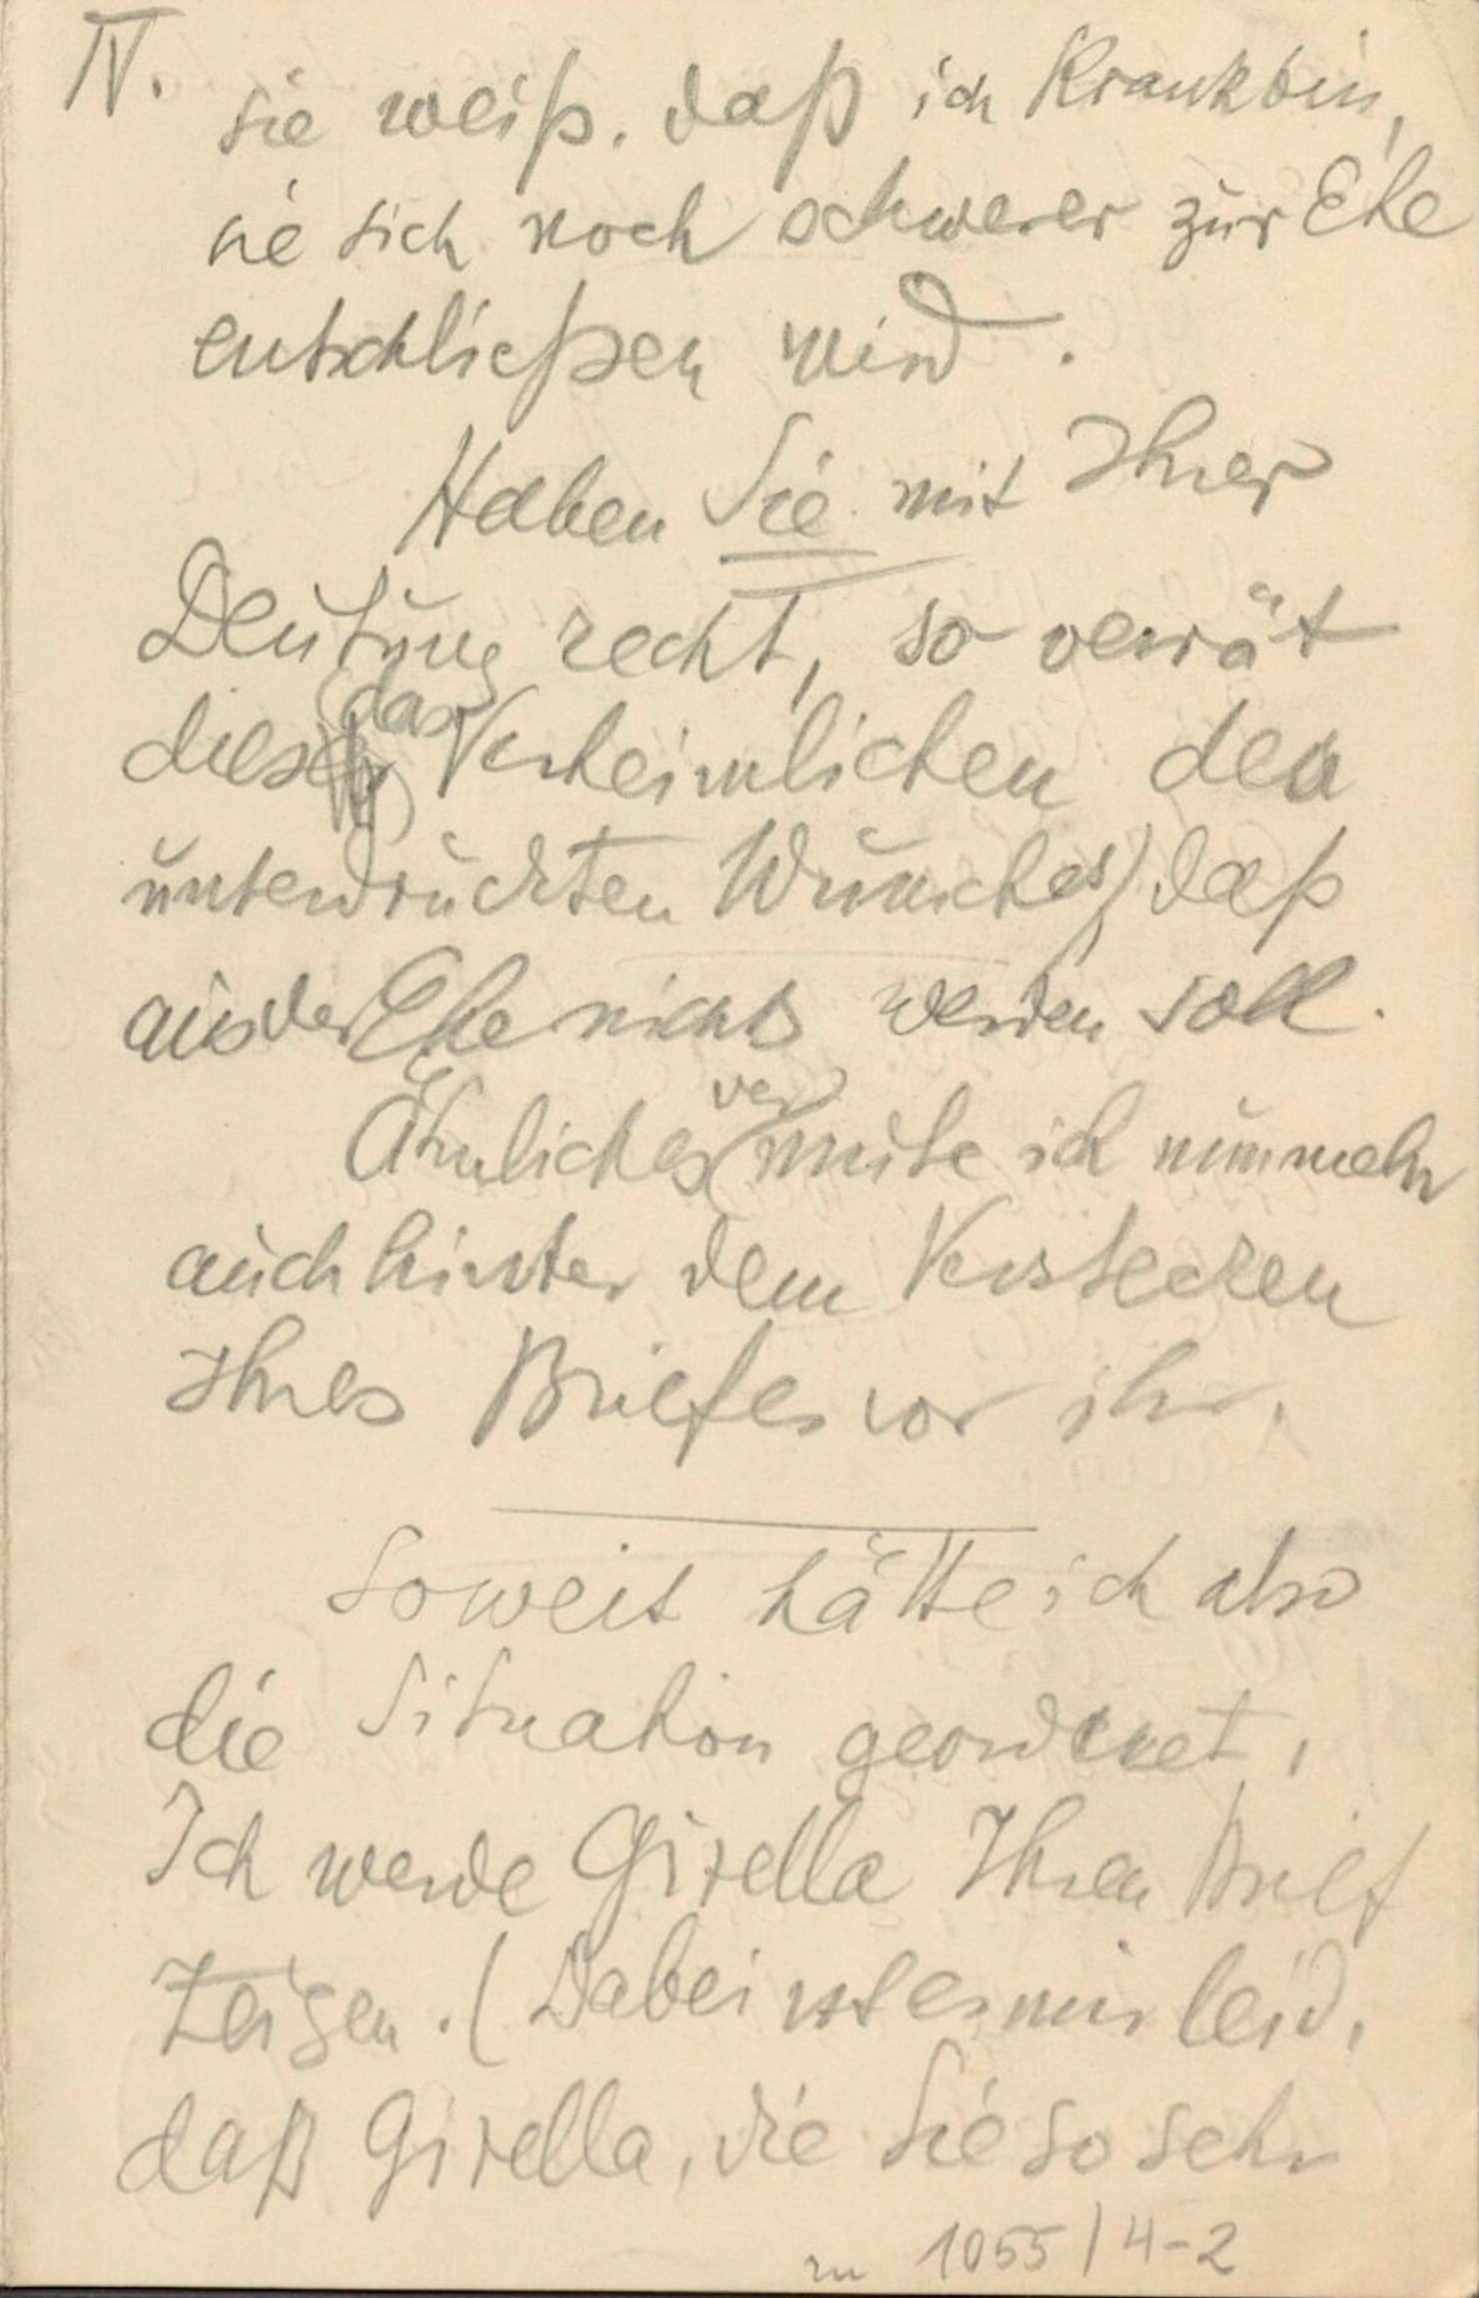 IV.
sie weiß, daß ich krank bin,
sie sich noch schwerer zur Ehe
entschließen wird.
Haben Sie mit Ihrer
Deutung recht, so verrät
das
diese Verheimlichen den
unterdrückten Wunsches, daß
aus der Ehe nichts werden soll.
ver
Ähnliches mute ich nunmehr
auch hinter dem Verstecken
Ihres Briefes vor ihr.
Soweit hätte ich also
die Situation geordnet.
Ich werde Gizella Ihren Brief
zeigen. (Dabei ist es mir leid,
daß Gizella, die Sie so sehr
zu 1055/4-2